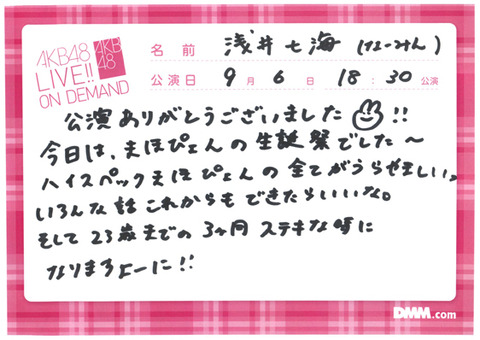 AKB48
LIVE!!
ON DEMAND
AKB
48
名前 浅井七海 (なーみん)
公演日 9月6日 18:30 公演
公演ありがとうございました!!
今日は、まほぴょんの生誕祭でした〜
ハイスペックまほぴょんの全てがうらやましい。
いろんな話これからもできたらいいな。
そして23歳までの3ヶ月ステキな時に
なりますよーに!!
DMM.com